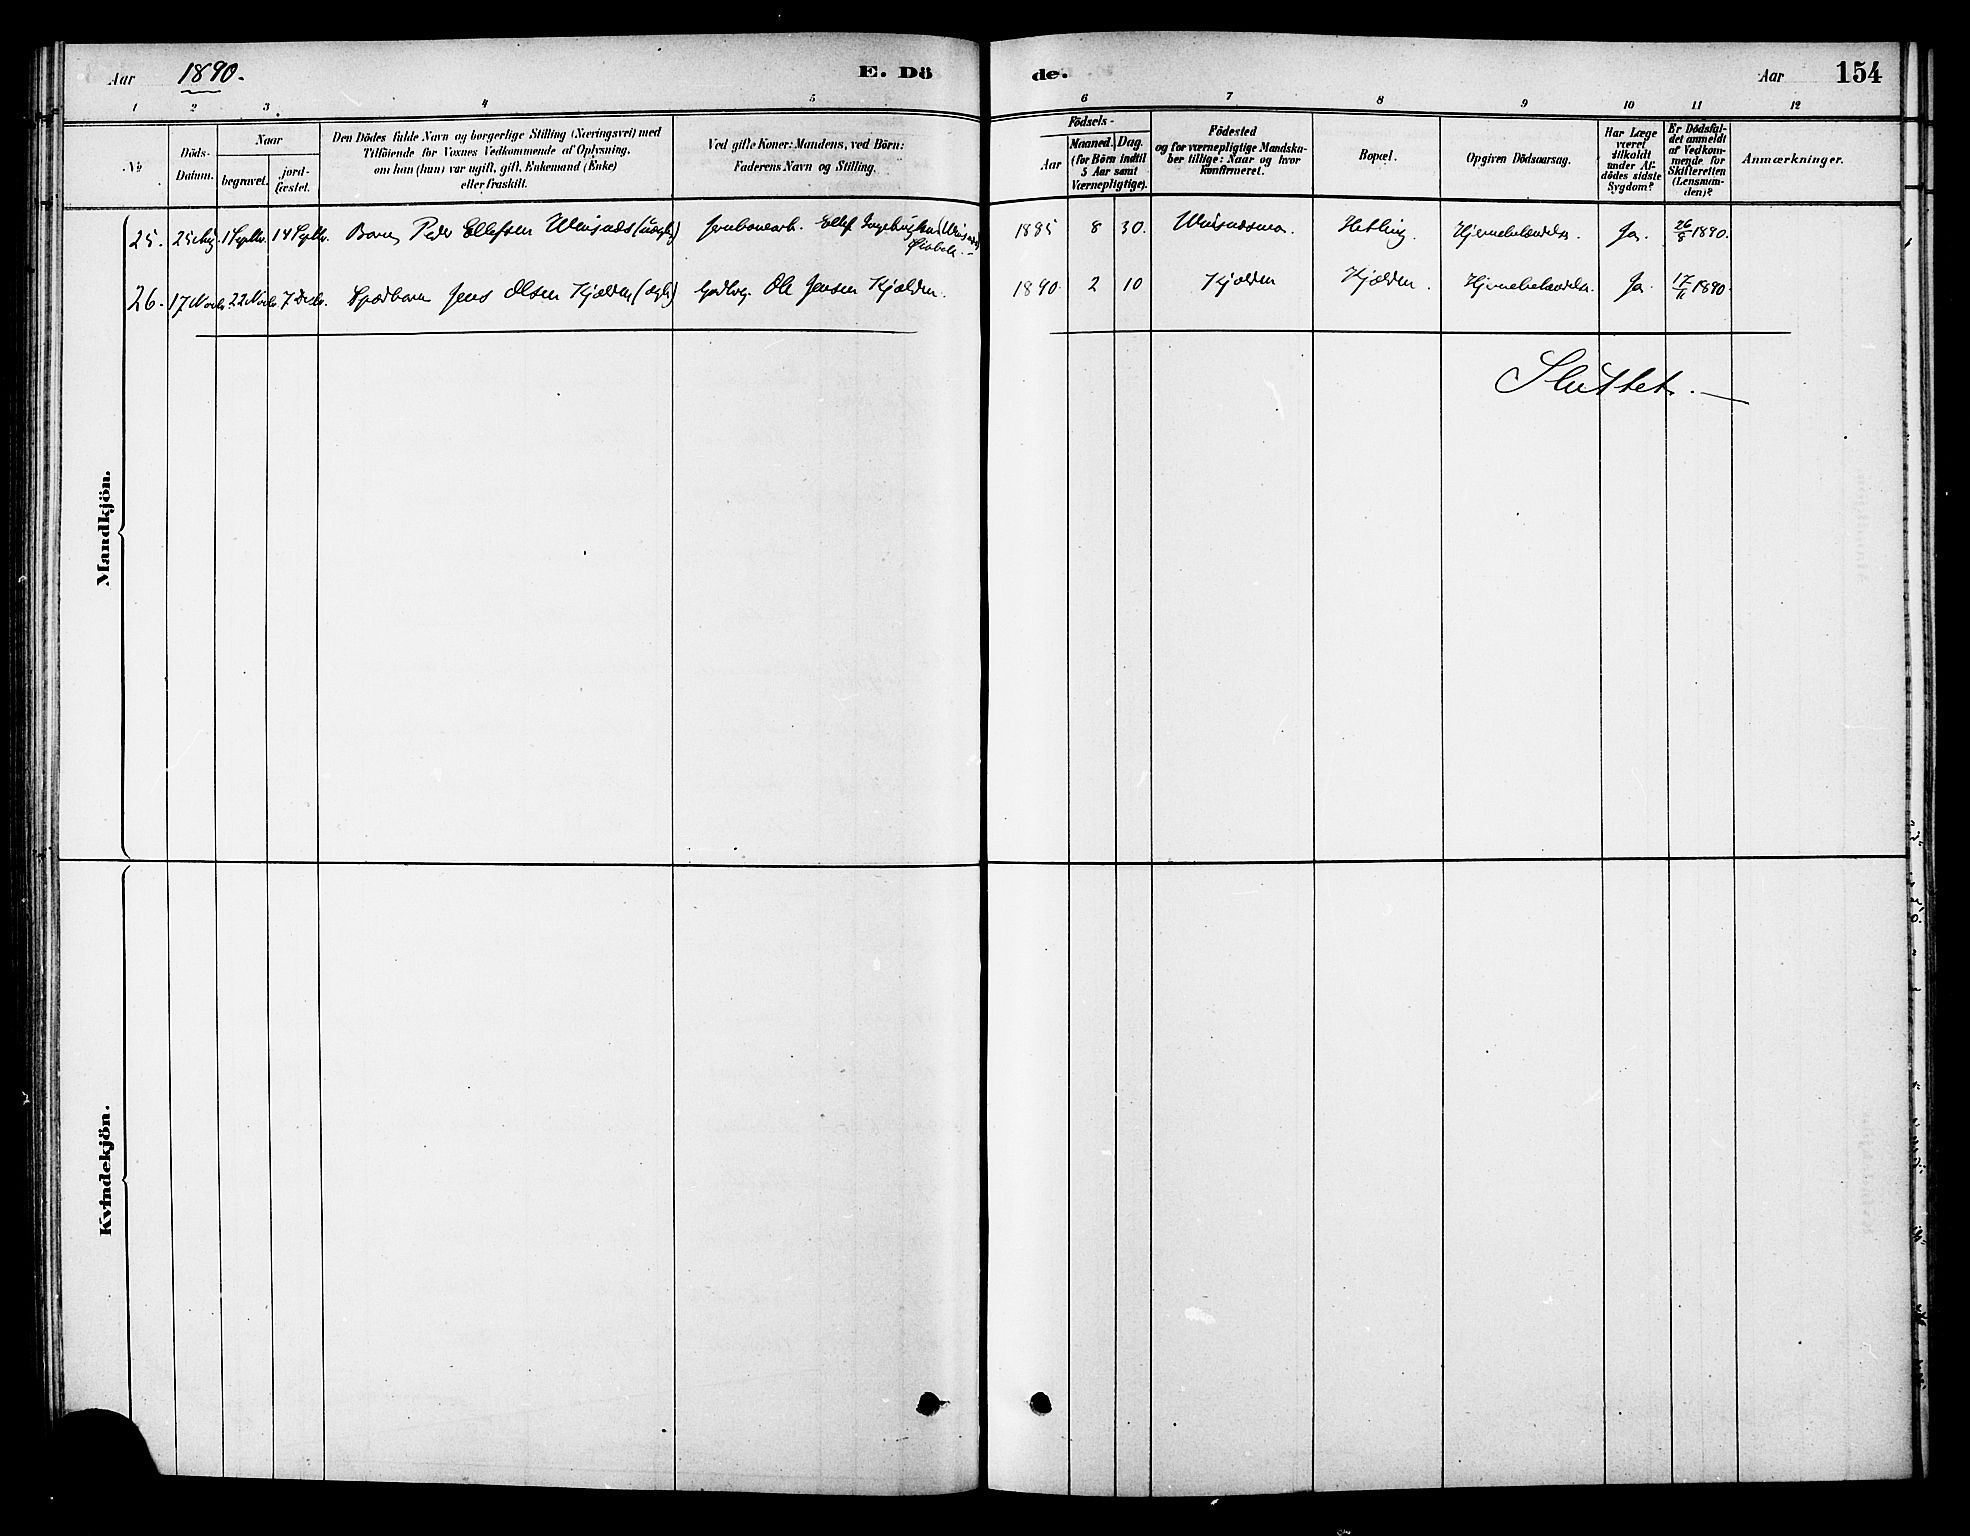 Aar 1890.
E. Dö
de.
Aar
154
1 2 3 4 5
6 7 8 9 10 11 12
No
Döds-
Datum.
Naar
begravet.
jord-
fæstet.
Den Dödes fulde Navn og borgerlige Stilling (Næringsvei) med
Tilföiende for Voxnes Vedkommende af Oplysning,
om han (hun) var ugift, gift, Enkemand (Enke)
eller fraskilt.
Ved gifte Koner: Mandens, ved Börn:
Faderens Navn og Stilling.
Födsels-
Aar
Maaned. Dag.
(for Börn indtil
5 Aar samt
Værnepligtige).
Födested
og for værnepligtige Mandska-
ber tillige: Naar og hvor
konfirmeret.
Bopæl.
Opgiven Dödsaarsag.
Har Læge
været
tilkaldt
under Af-
dödes sidste
Sygdom?
Er Dödsfal-
det anmeldt
af Vedkom-
mende for
Skifteretten
(Lensman-
den)?
Anmærkninger.
Mandkjön.
25. 25 Aug. 1 Septbr. 14 Septbr. Barn Peder Ellefsen (uægte) Jernbanearb. Ellef 1885 8 30. Ja. 26/8 1890.
26. 17 Novbr. 22 Novbr. 7 Decbr. Spædbarn Jens Olsen Kjælden (ægte) Gaardbr. Ole Jensen Kjælden. 1890. 2 10 Kjælden Kjælden. Ja. 17/11 1890.
Sluttet.
Kvindekjön.